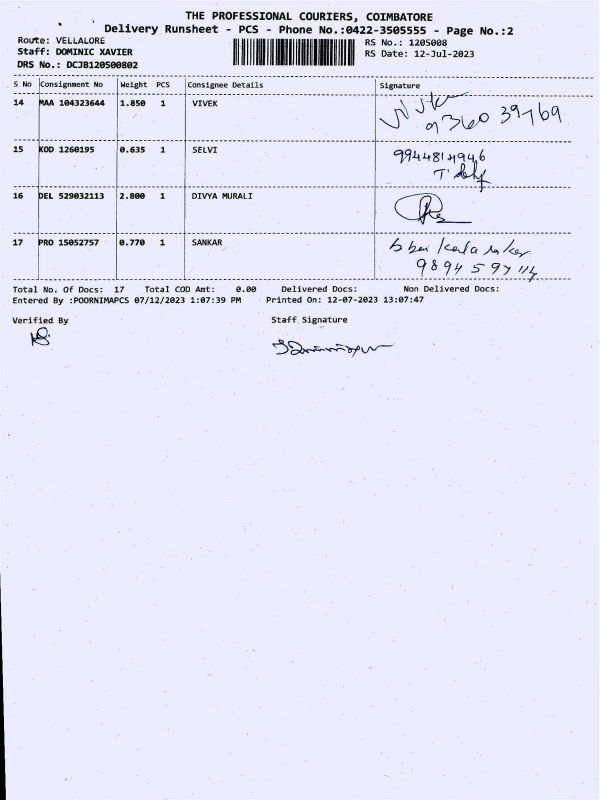 THE PROFESSIONAL COURIERS, COIMBATORE
Delivery Runsheet - PCS - Phone No.:0422-3505555 - Page No.:2
Route: VELLALORE
RS No.: 1205008
Staff: DOMINIC XAVIER
RS Date: 12-Jul-2023
DRS No.: DCJB120500802
S No Consignment No Weight PCS Consignee Details Signature
14 MAA 104323644 1.850 1 VIVEK
9360 39769
15 KOD 1260195 0.635 1 SELVI
16 DEL 529032113 2.800 1 DIVYA MURALI
17 PRO 15052757 0.770 1 SANKAR
Total No. Of Docs: 17 Total COD Amt: 0.00 Delivered Docs: Non Delivered Docs:
Entered By :POORNIMAPCS 07/12/2023 1:07:39 PM Printed On: 12-07-2023 13:07:47
Verified By Staff Signature